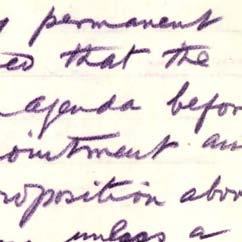 permanent
that the
agenda befor
ointment an
roposition abov
unless a